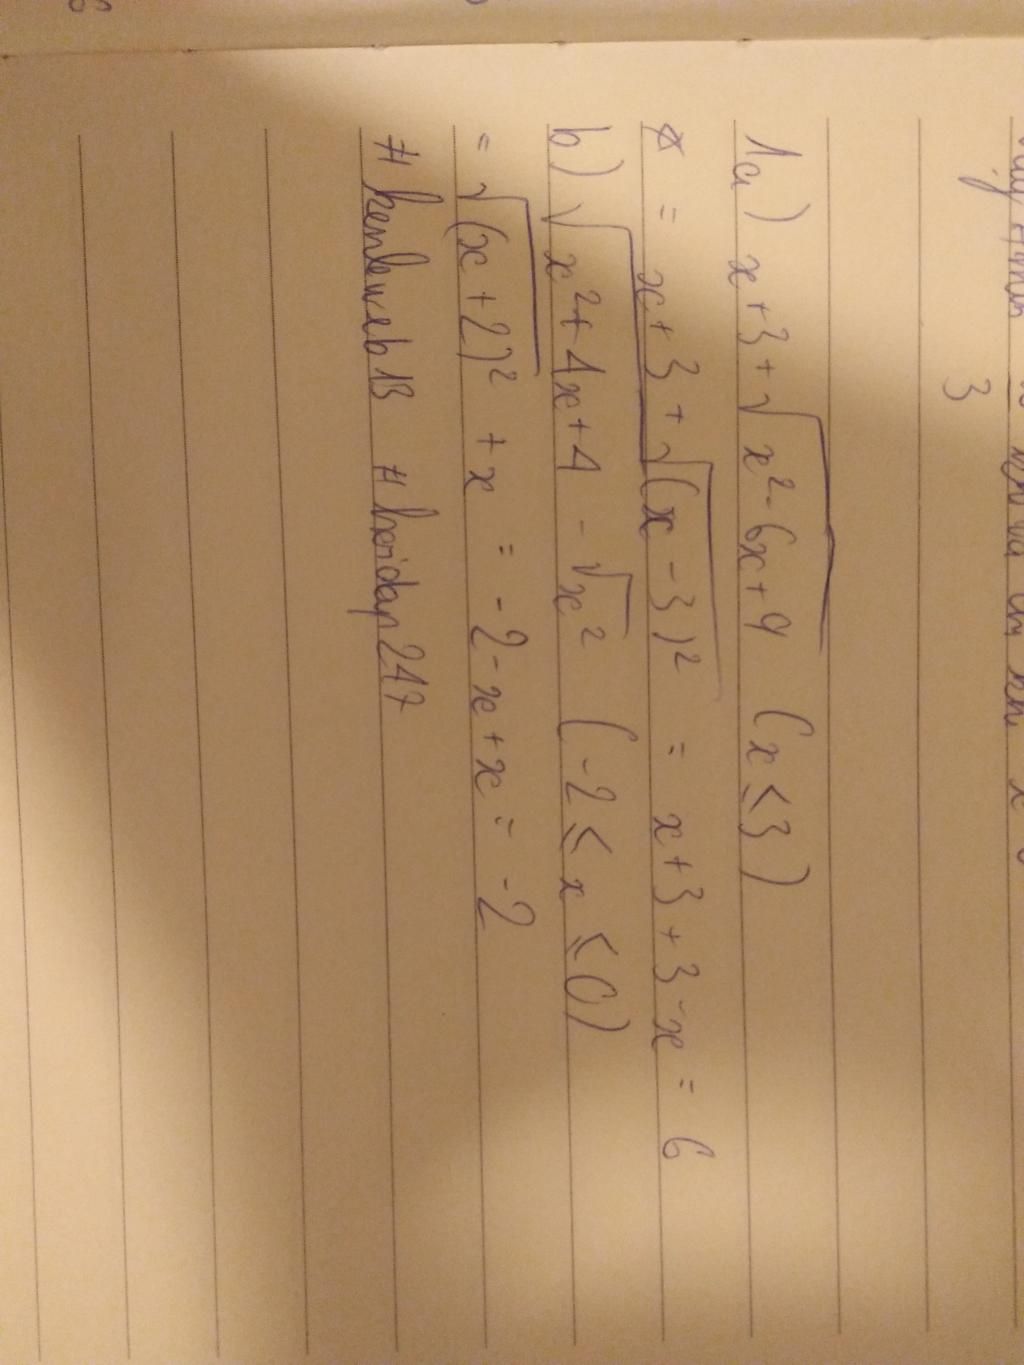 3
1a) x+3+√x²-6x+9 (x≤3)
= x+3+√(x-3)² = x+3+3-x = 6
b) √x²+4x+4 - √x² (-2≤x≤0)
= √(x+2)² +x = -2-x+x = -2
#henleweb13 #hoidap247